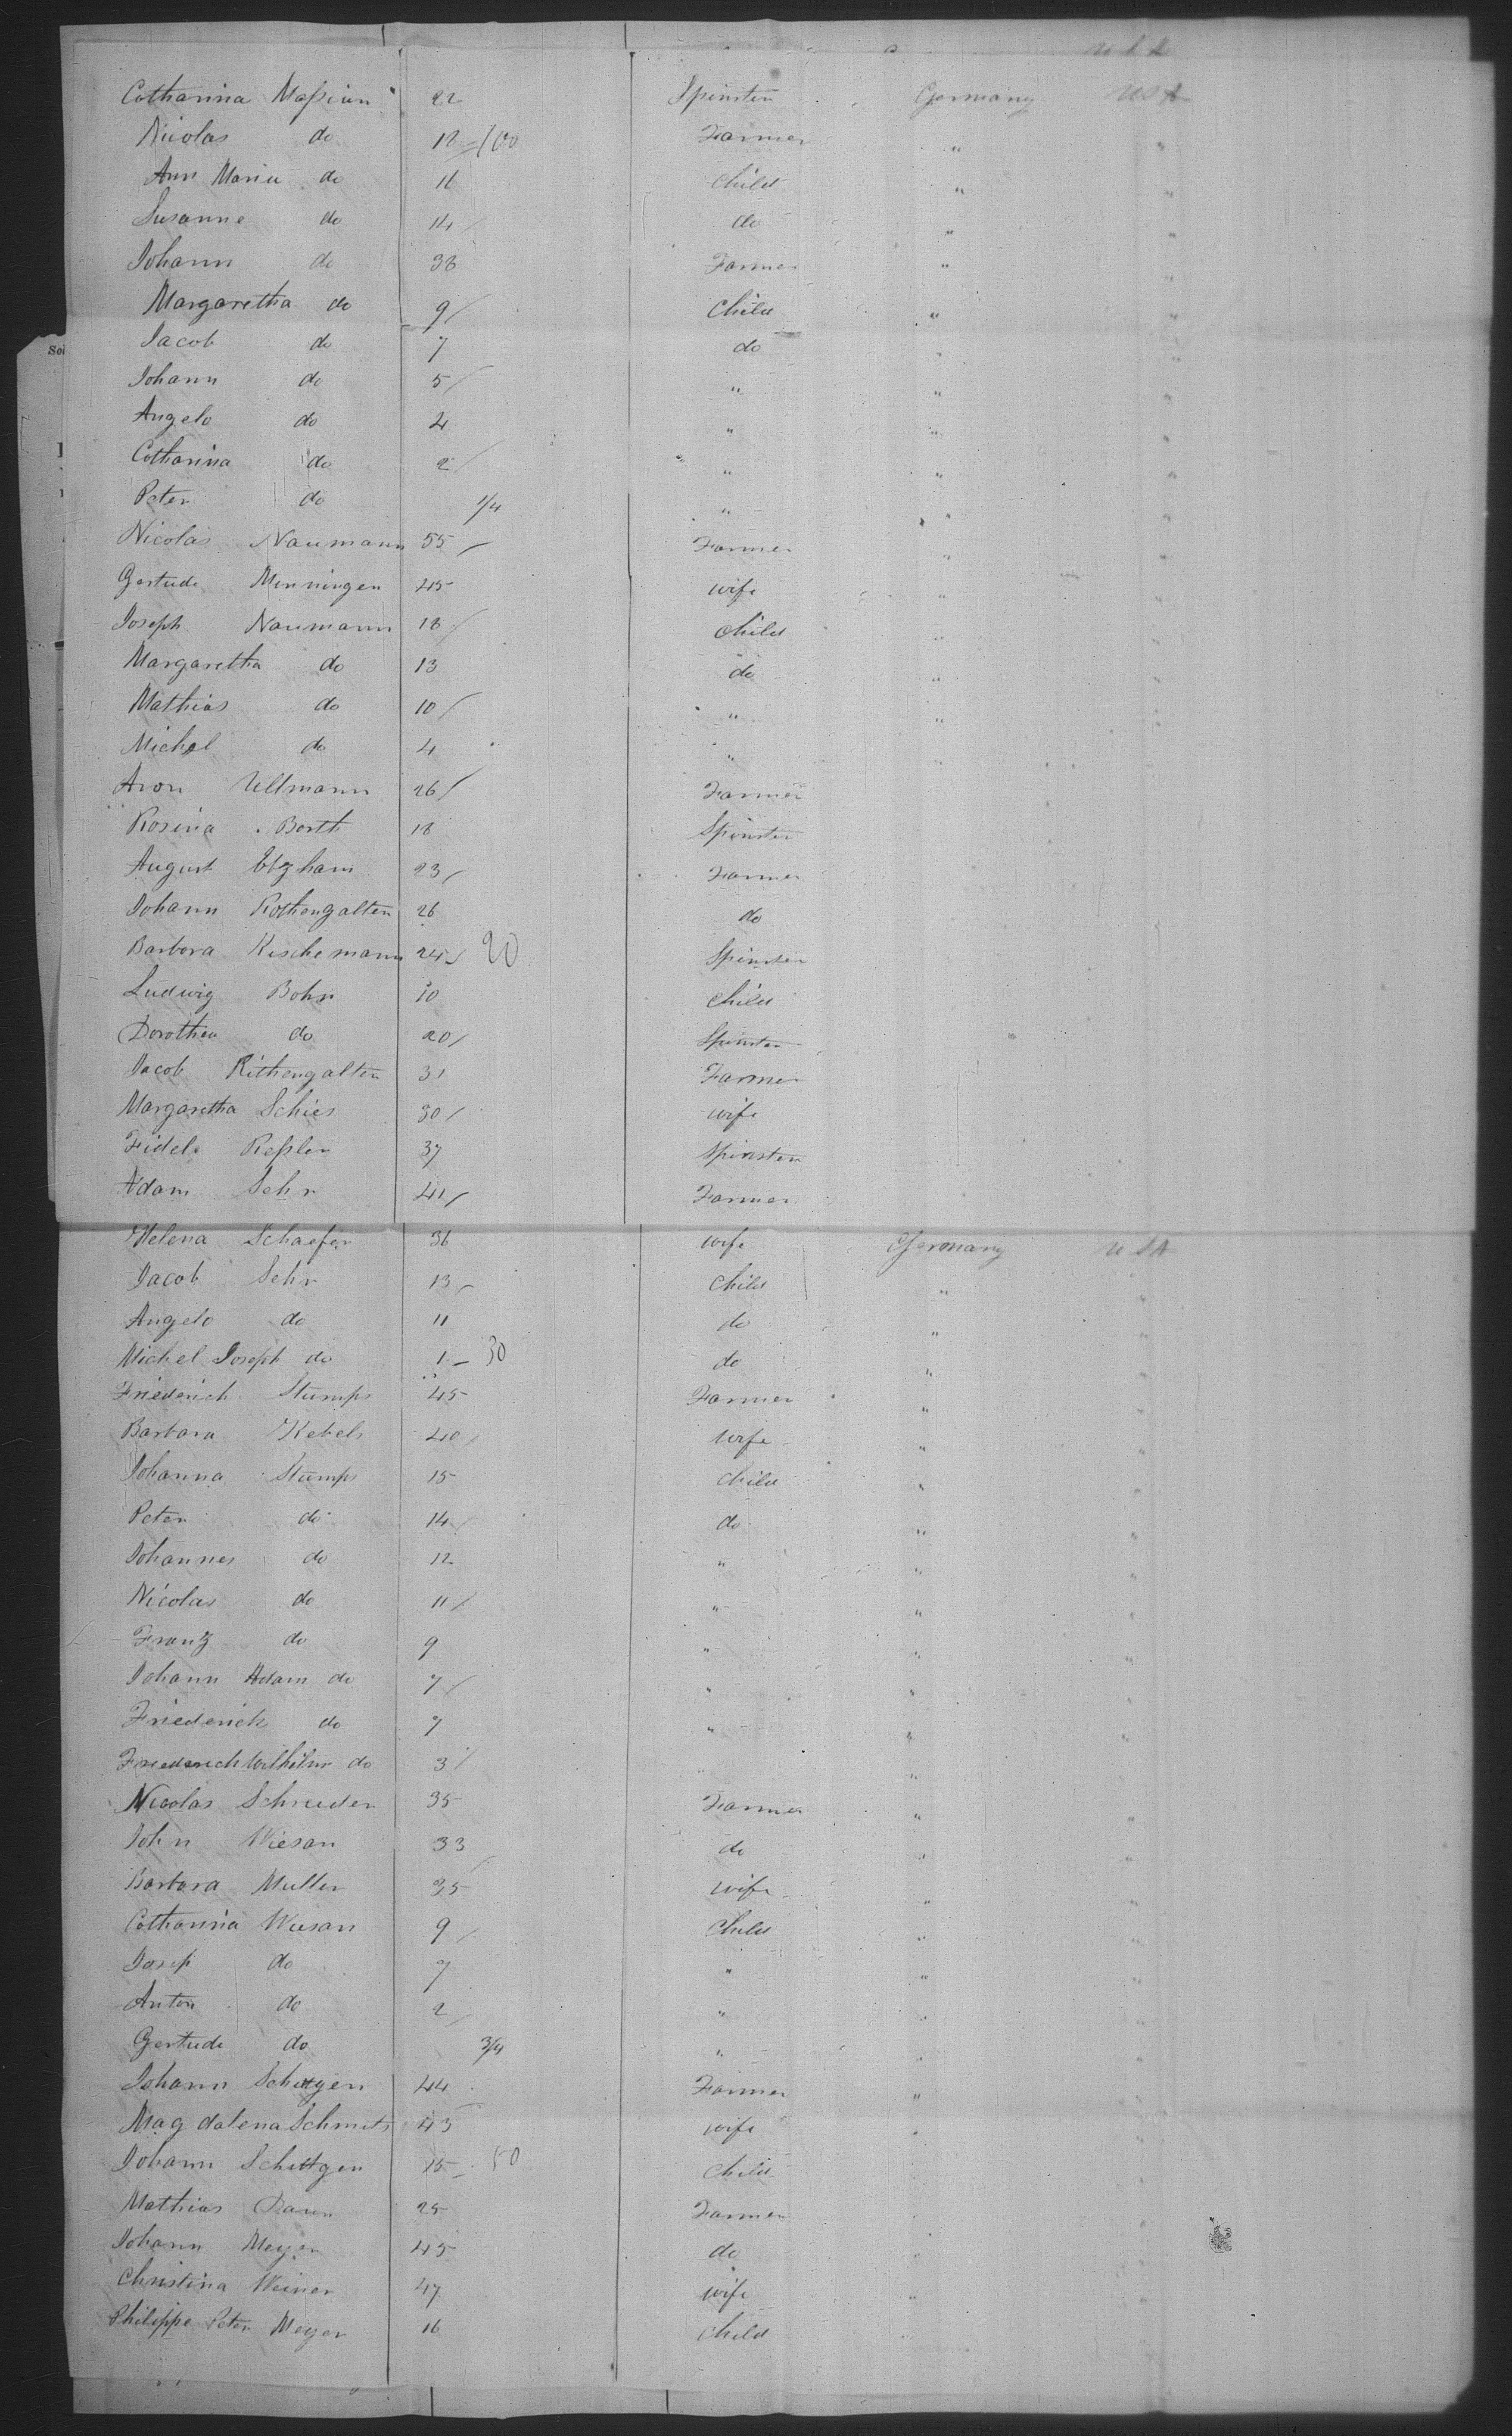 U S A
Catharina Maßiun 22 Spinster Germany USA
Nicolas do 18 100 Farmer " "
Ann Maria do 16 Child " "
Susanne do 14 / do " "
Johann do 38 Farmer " "
Margaretha do 9 / Child " "
Jacob do 7 do " "
Johann do 5 / " " "
Angela do 4 " " "
Catharina do 2 / " " "
Peter do 1/4 " " "
Nicolas Naumann 55 / Farmer " "
Gertude Menningen 45 wife " "
Joseph Naumann 18 / child " "
Margaretha do 13 do " "
Mathias do 10 / " " "
Michel do 4 " " "
Aron Ullmann 26 / Farmer
Rosina Barth 18 Spinster
August Etzham 23 / Farmer
Johann Rothengalten 26 do
Barbara Kischemann 24 / 20 Spinster
Ludwig Bohr 10 Child
Dorothea do 20 / Spinster
Jacob Rithengalten 31 Farmer
Margaretha Schies 30 / wife
Fidele Reßler 37 Spinster
Adam Sehr 41 / Farmer
Helena Schaefer 36 wife Germany U S A
Jacob Sehr 13 / Child " "
Angela do 11 do " "
Michel Joseph do 1 - 30 do " "
Friederich Stumps 45 Farmer " "
Barbara Kebels 40 / wife " "
Johanna Stumps 15 child " "
Peter do 14 / do " "
Johannes do 12 " " "
Nicolas do 11 / " " "
Franz do 9 " " "
Johann Adam do 7 / " " "
Friederich do 7 " " "
Friederich Wilhelm do 3 / " "
Nicolas Schreider 35 Farmer " "
John Wiesan 33 do " "
Barbara Muller 35 wife " "
Catharina Wiesan 9 / Child " "
Josep do 7 " " "
Anton do 2 / " " "
Gertude do 3/4 " " "
Johann Schettgen 44 Farmer " "
Magdalena Schmits 43 wife " "
Johann Schettgen 15 - 50 Child
Mathias Daun 25 Farmer
Johann Meyer 45 do "
Christina Weiner 47 wife "
Philippe Peter Meyer 16 Child